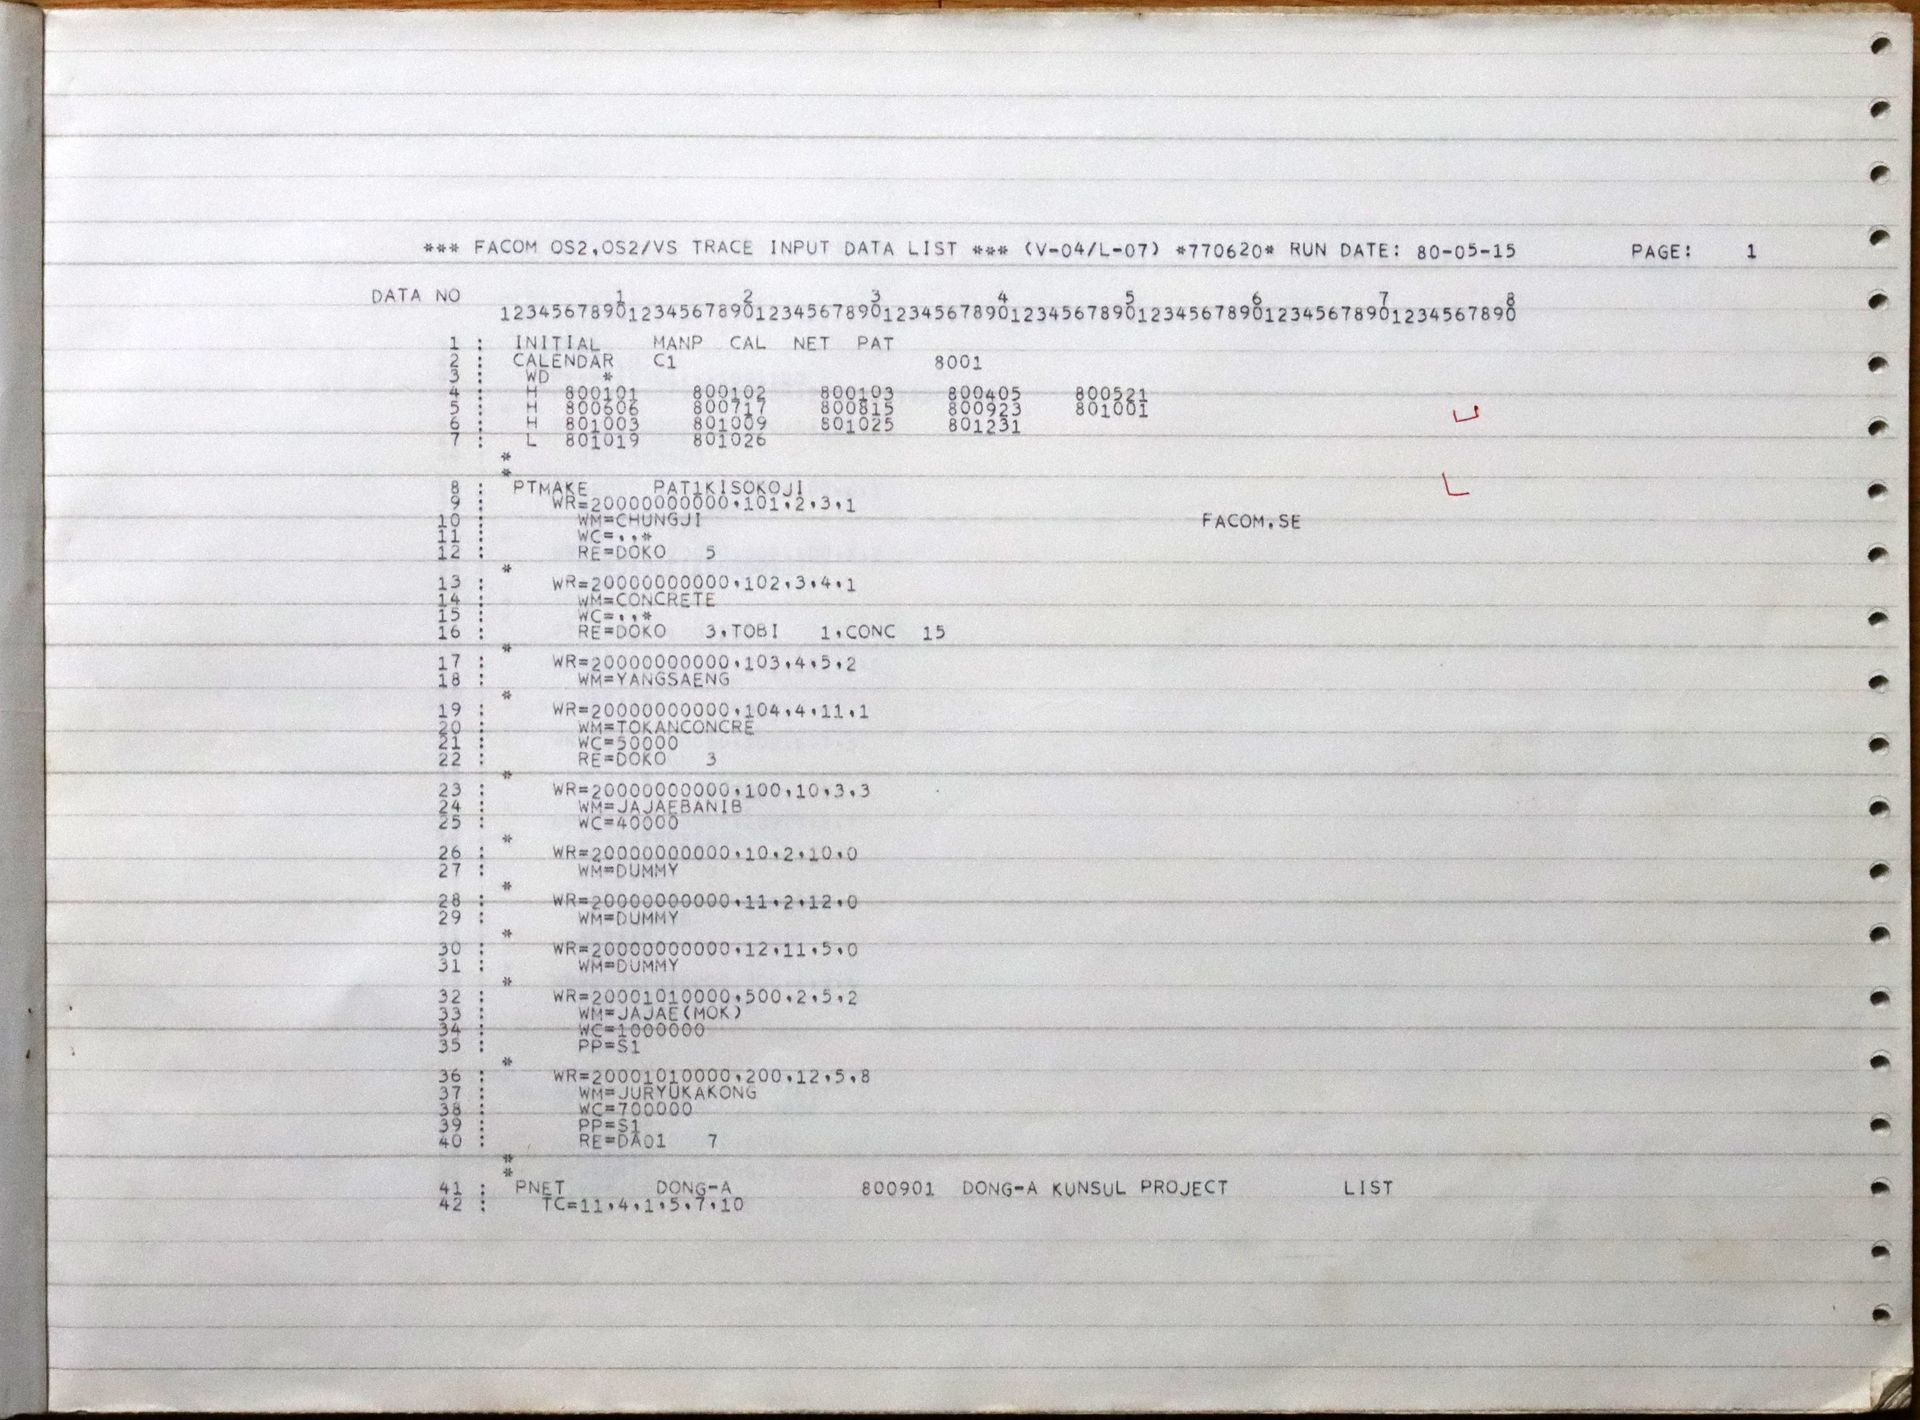 *** FACOM OS2,OS2/VS TRACE INPUT DATA LIST *** (V-04/L-07) *770620* RUN DATE: 80-05-15 PAGE: 1
DATA NO 1 2 3 4 5 6 7 8
12345678901234567890123456789012345678901234567890123456789012345678901234567890
1 : INITIAL MANP CAL NET PAT
2 : CALENDAR C1 8001
3 : WD *
4 : H 800101 800102 800103 800405 800521
5 : H 800606 800717 800815 800923 801001
6 : H 801003 801009 801025 801231
7 : L 801019 801026
*
*
8 : PTMAKE PAT1KISOKOJI
9 : WR=20000000000,101,2,3,1
10 : WM=CHUNGJI FACOM.SE
11 : WC=,,*
12 : RE=DOKO 5
*
13 : WR=20000000000,102,3,4,1
14 : WM=CONCRETE
15 : WC=,,*
16 : RE=DOKO 3,TOBI 1,CONC 15
*
17 : WR=20000000000,103,4,5,2
18 : WM=YANGSAENG
*
19 : WR=20000000000,104,4,11,1
20 : WM=TOKANCONCRE
21 : WC=50000
22 : RE=DOKO 3
*
23 : WR=20000000000,100,10,3,3
24 : WM=JAJAEBANIB
25 : WC=40000
*
26 : WR=20000000000,10,2,10,0
27 : WM=DUMMY
*
28 : WR=20000000000,11,2,12,0
29 : WM=DUMMY
*
30 : WR=20000000000,12,11,5,0
31 : WM=DUMMY
*
32 : WR=20001010000,500,2,5,2
33 : WM=JAJAE(MOK)
34 : WC=1000000
35 : PP=S1
*
36 : WR=20001010000,200,12,5,8
37 : WM=JURYUKAKONG
38 : WC=700000
39 : PP=S1
40 : RE=DA01 7
*
*
41 : PNET DONG-A 800901 DONG-A KUNSUL PROJECT LIST
42 : TC=11,4,1,5,7,10